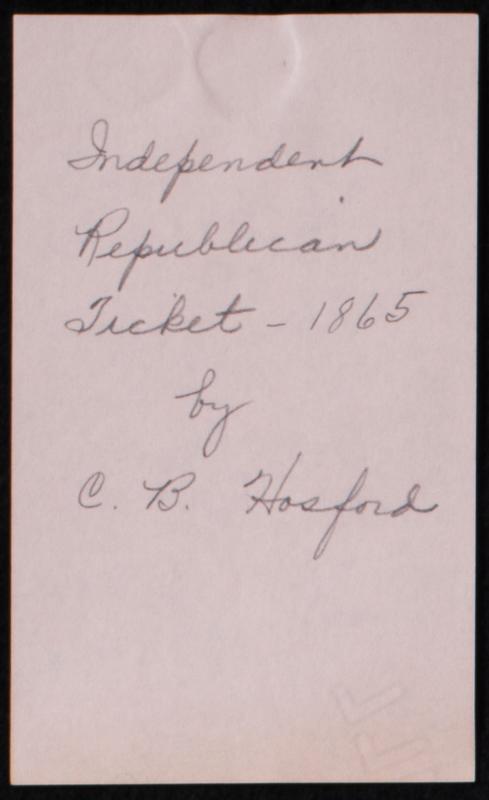 Independent
Republican
Ticket - 1865
by
C. B. Hosford